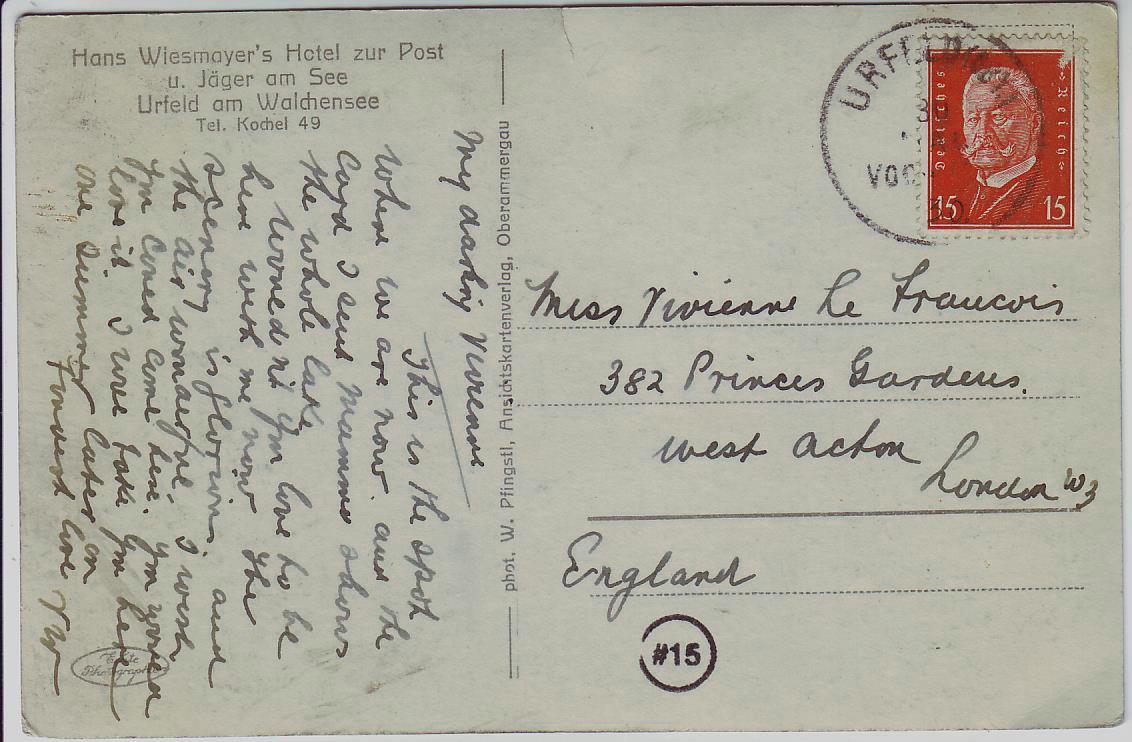 Hans Wiesmayer's Hotel zur Post
u. Jäger am See
Urfeld am Walchensee
Tel. Kochel 49
My darling Vivienne
This is the spot
where we are now. and the
card I sent Mummie shows
the whole lake,
Wouldn't you love to be
here with me now The
scenery is glorious. and
the air wonderful. I wish
you could come here. you would
love it. I will take you here
one summer later on
Fondest love
Echte
Photographie
phot. W. Pfingstl, Ansichtskartenverlag, Oberammergau
URFELD
30
Deutsches Reich
15 15
Miss Vivienne Le Francois
382 Princes Gardens.
West Acton
London W3
England
#15